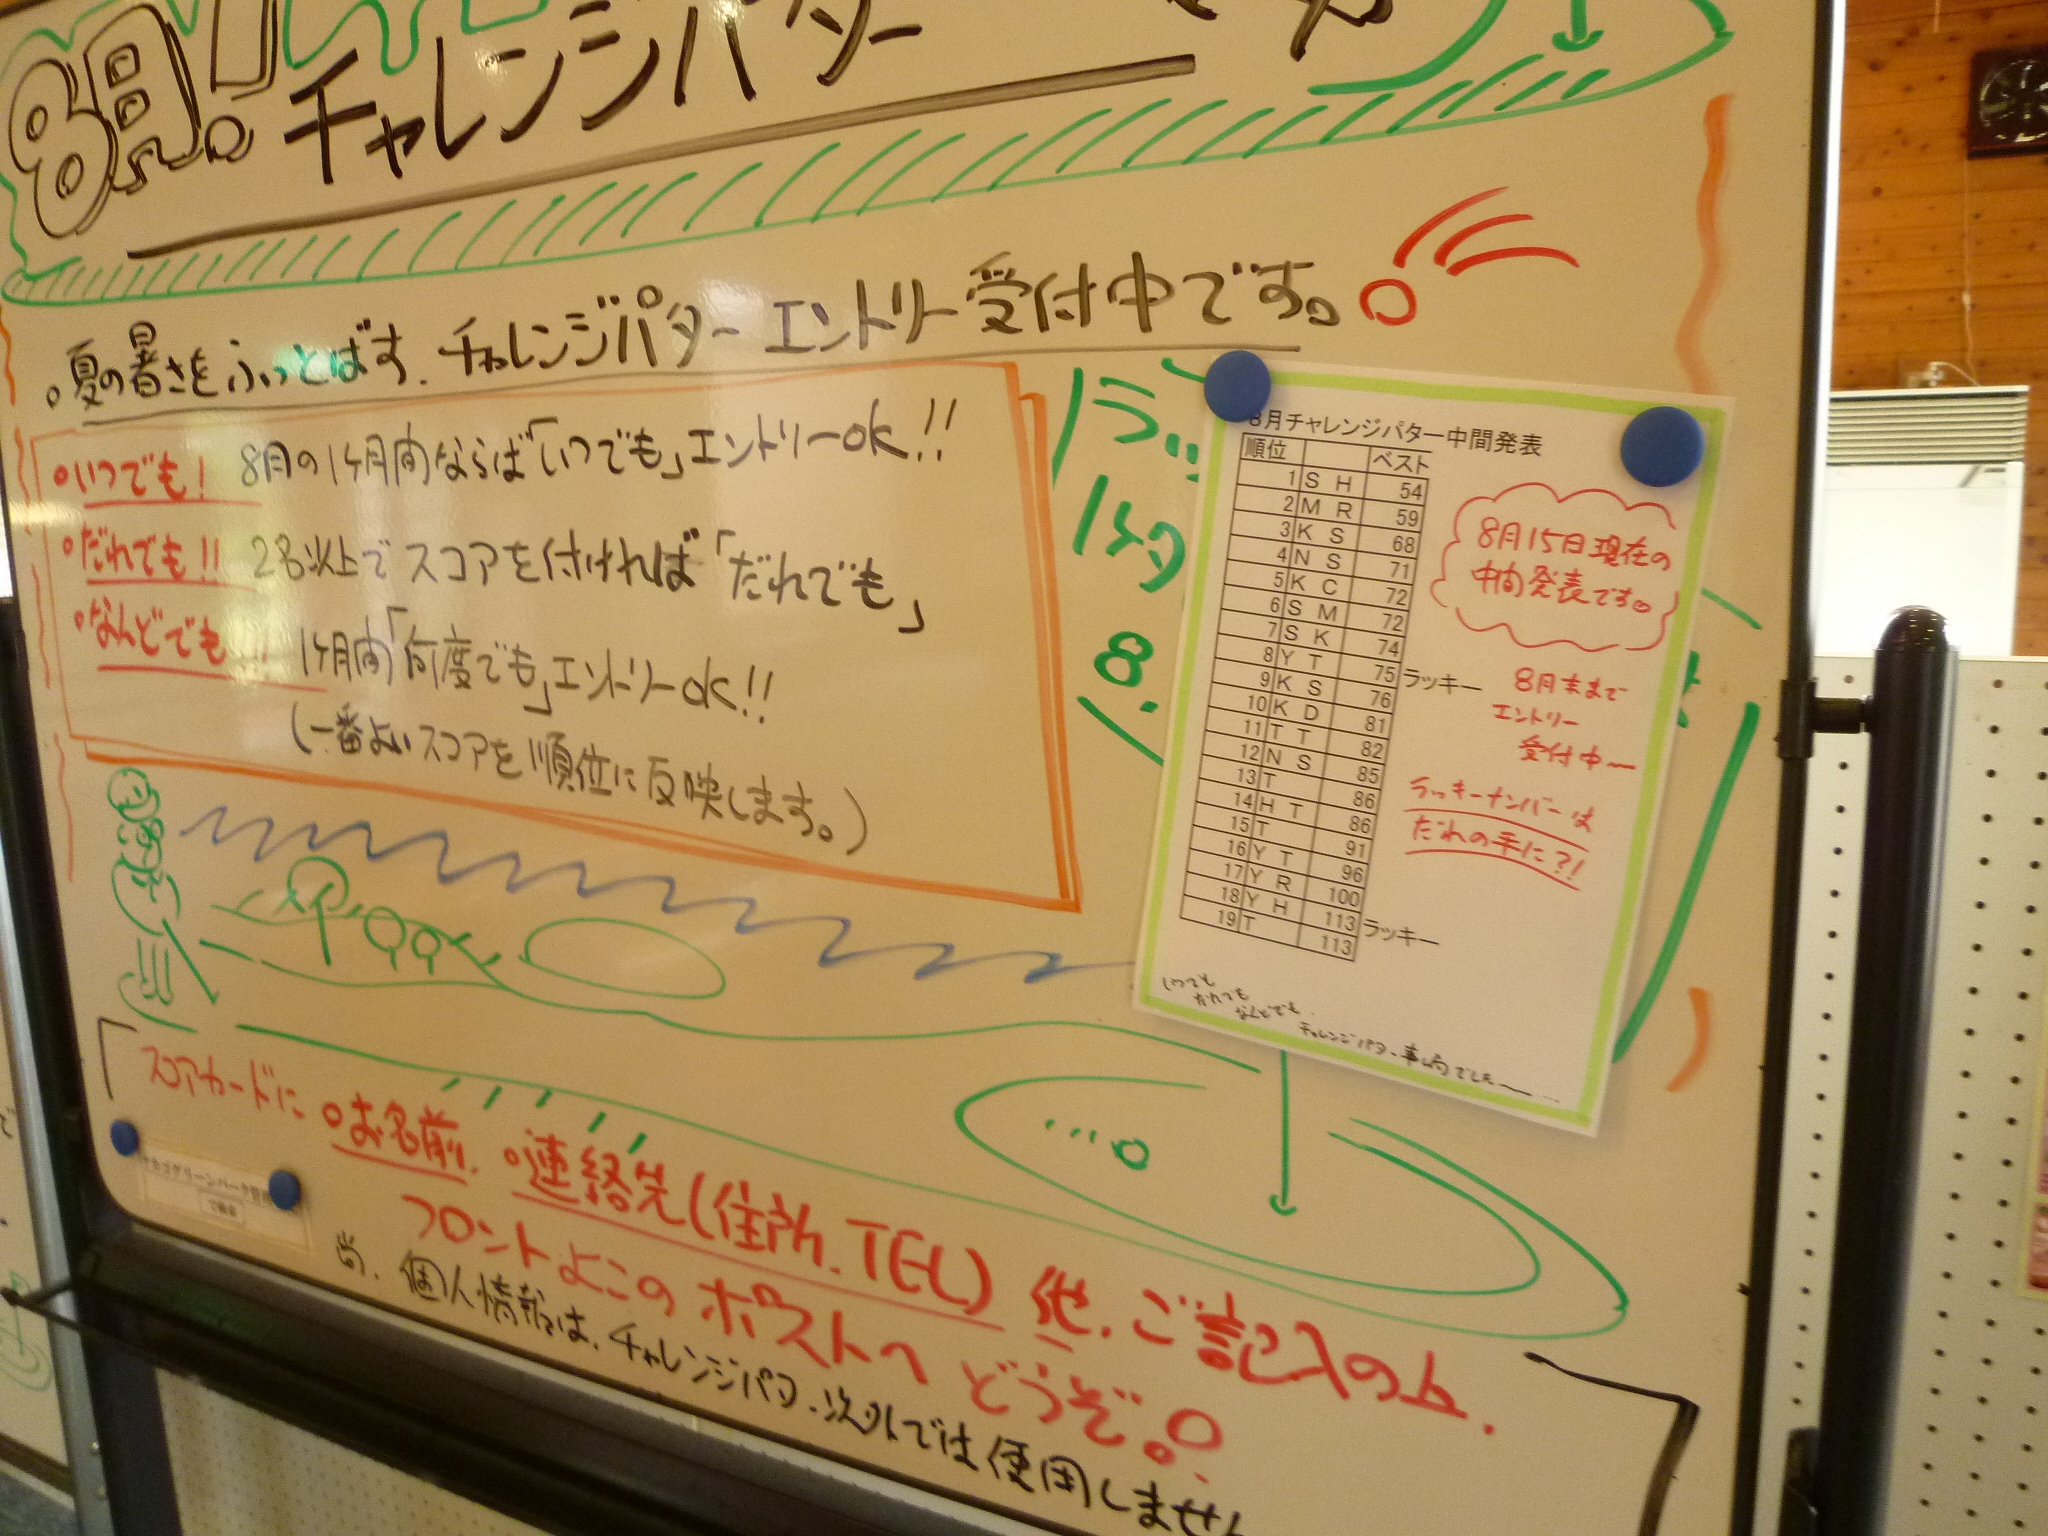 8月!
チャレンジパター
。夏の暑さをふっとばす.チャレンジパター エントリー受付中です。
。いつでも! 8月の1ヶ月間ならば「いつでも」エントリーOK!!
。だれでも!! 2名以上でスコアを付ければ「だれでも」
。なんどでも!!! 1ヶ月間「何度でも」エントリーOK!!
(一番よいスコアを順位に反映します。)
ラッ
8.
8月チャレンジパター中間発表
順位 ベスト
1 S H 54
2 M R 59
3 K S 68
4 N S 71
5 K C 72
6 S M 72
7 S K 74
8 Y T 75 ラッキー
9 K S 76
10 K D 81
11 T T 82
12 N S 85
13 T 86
14 H T 86
15 T 91
16 Y T 96
17 Y R 100
18 Y H 113 ラッキー
19 T 113
8月15日現在の
中間発表です。
8月末まで
エントリー
受付中〜
ラッキーナンバーは
だれの手に?!
いつでも
だれでも
なんどでも.
チャレンジパター事ム局でした〜....
「スコアカードに 。お名前. 。連絡先(住所.TEL)他.ご記入の上.
フロントよこのポストへどうぞ。
尚.個人情報は.チャレンジパター以外では使用しません